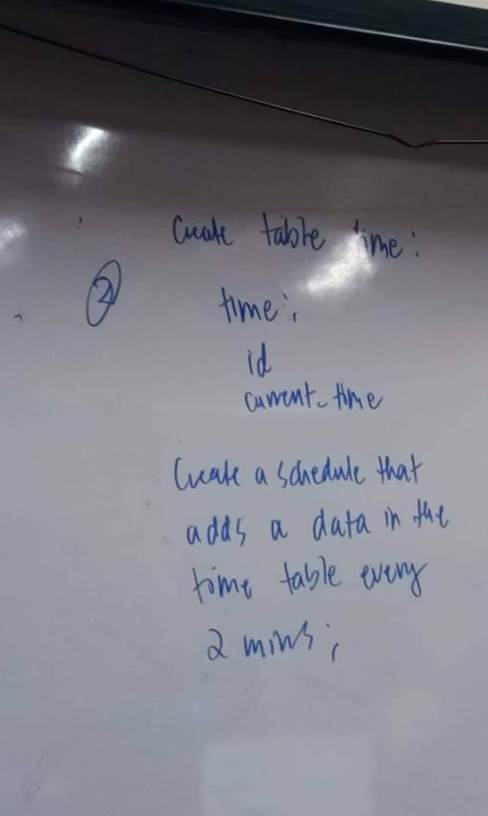 Create table time:
②
time:,
id
current_time
Create a schedule that
adds a data in the
time table every
2 mins;